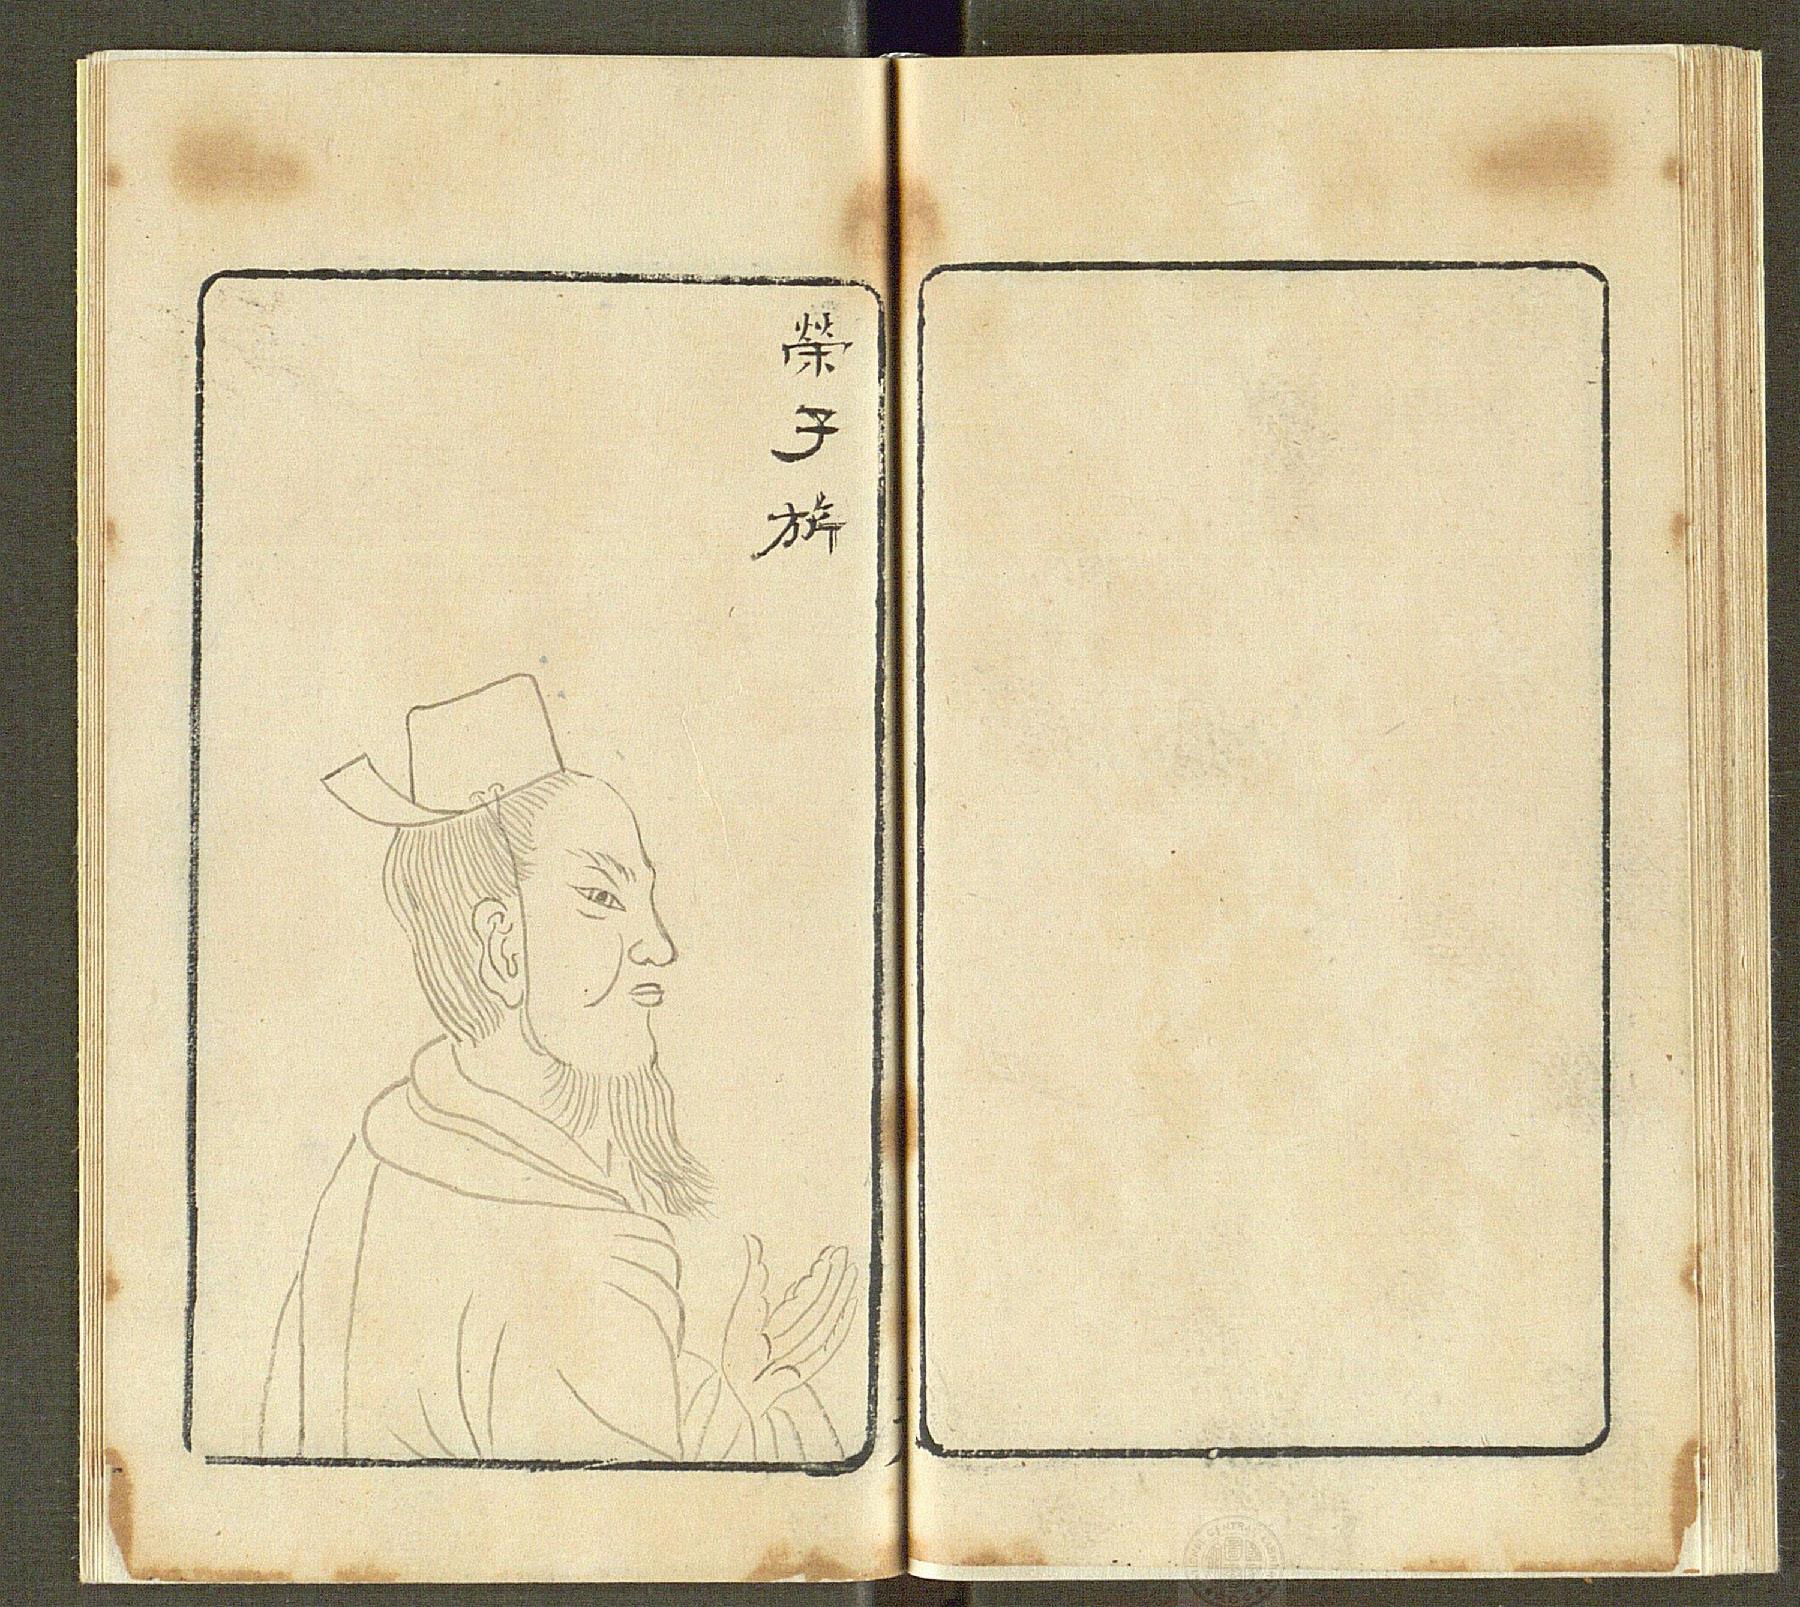 榮子旂